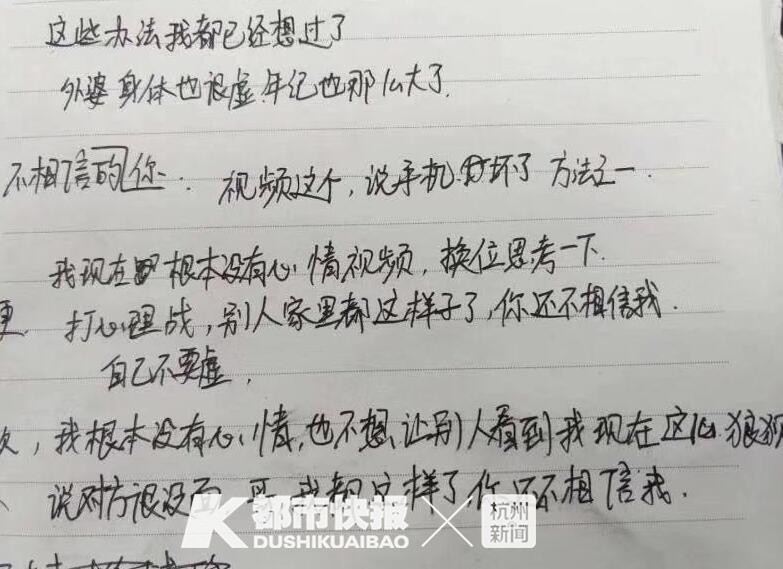 这些办法我都已经想过了
外婆身体也很虚.年纪也那么大了.
不相信的你. 视频这个,说手机坏了 方法之一.
我现在 根本没有心情视频,换位思考一下.
打心理战,别人家里都这样子了,你还不相信我.
自己不要虚,
,我根本没有心情,也不想让别人看到我现在这么狼狈
说对方很没面 我都这样了你还不相信我.
都市快报
DUSHIKUAIBAO
杭州
新闻